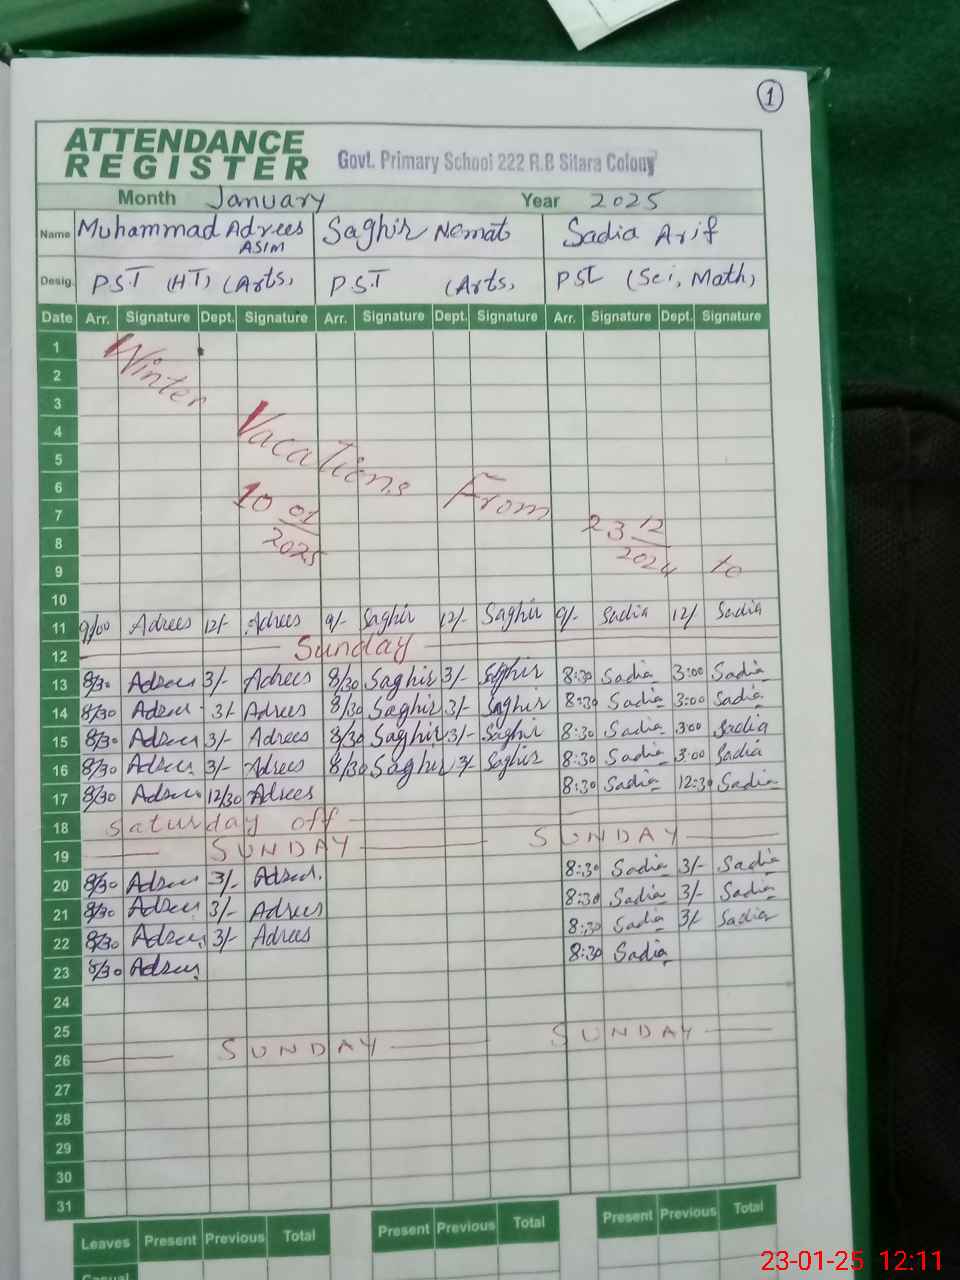 1
ATTENDANCE
REGISTER
Govt. Primary School 222 R.B Sitara Colony
Month January Year 2025
Name Muhammad Adrees ASIM Saghir Nemat Sadia Arif
Desig. PST (HT) (Arts) PST (Arts) PST (Sci, Math)
Date Arr. Signature Dept. Signature Arr. Signature Dept. Signature Arr. Signature Dept. Signature
1 Winter
2
3
4 Vacations
5
6 From
7 10 01/2025 23 12/2024
8
9 to
10
11 9/00 Adrees 12/- Adrees 9/- Saghir 12/- Saghir 9/- Sadia 12/ Sadia
12 Sunday
13 8/30 Adrees 3/- Adrees 8/30 Saghir 3/- Saghir 8:30 Sadia 3:00 Sadia
14 8/30 Adrees 3/- Adrees 8/30 Saghir 3/- Saghir 8:30 Sadia 3:00 Sadia
15 8/30 Adrees 3/- Adrees 8/30 Saghir 3/- Saghir 8:30 Sadia 3:00 Sadia
16 8/30 Adrees 3/- Adrees 8/30 Saghir 3/- Saghir 8:30 Sadia 3:00 Sadia
17 8/30 Adrees 12/30 Adrees 8:30 Sadia 12:30 Sadia
18 Saturday off
19 SUNDAY SUNDAY
20 8/30 Adrees 3/- Adrees 8:30 Sadia 3/- Sadia
21 8/30 Adrees 3/- Adrees 8:30 Sadia 3/- Sadia
22 8/30 Adrees 3/- Adrees 8:30 Sadia 3/- Sadia
23 8/30 Adrees 8:30 Sadia
24
25
26 SUNDAY SUNDAY
27
28
29
30
31
Leaves Present Previous Total Present Previous Total Present Previous Total
Casual
23-01-25 12:11